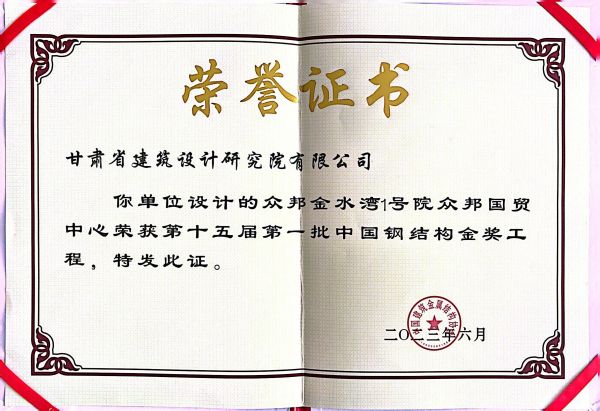 荣誉证书
甘肃省建筑设计研究院有限公司
你单位设计的众邦金水湾1号院众邦国贸
中心荣获第十五届第一批中国钢结构金奖工
程，特发此证。
中国建筑金属结构协会
二〇二三年六月